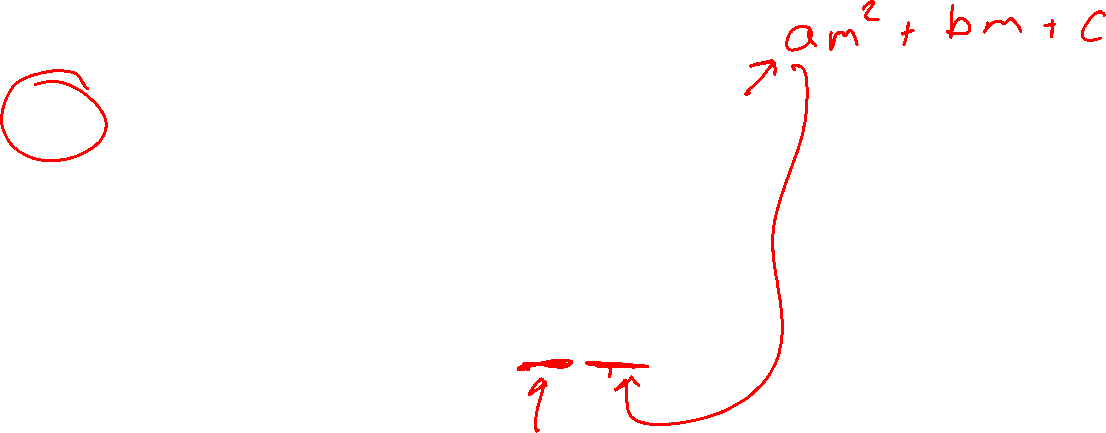 am² + bm + c